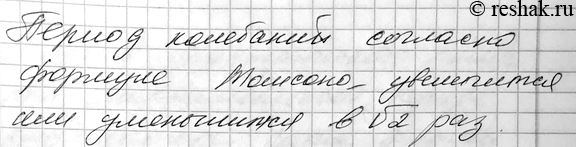 © reshak.ru
Период колебаний согласно
формуле Томсона увеличится
или уменьшится в √2 раз.